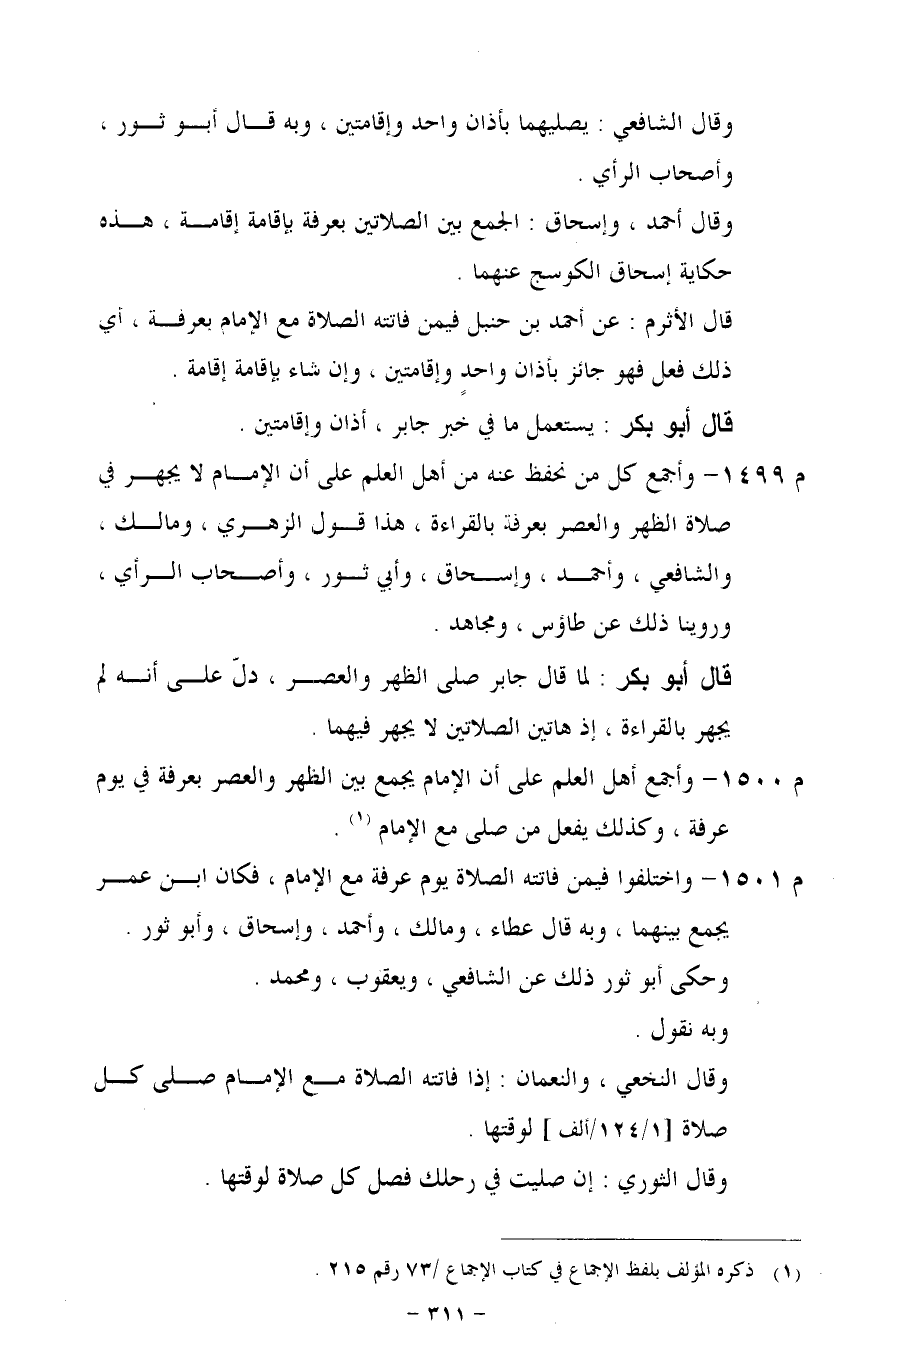 وقال الشافعي : يصليهما بأذان واحد وإقامتين ، وبه قـــال أبـــو ثـــور ،
وأصحاب الرأي .
وقال أحمد ، وإسحاق : الجمع بين الصلاتين بعرفة بإقامة إقامـــة ، هـــذه
حكاية إسحاق الكوسج عنهما .
قال الأثرم : عن أحمد بن حنبل فيمن فاتته الصلاة مع الإمام بعرفـــة ، أي
ذلك فعل فهو جائز بأذان واحدٍ وإقامتين ، وإن شاء بإقامة إقامة .
قال أبو بكر : يستعمل ما في خبر جابر ، أذان وإقامتين .
م ١٤٩٩- وأجمع كل من نحفظ عنه من أهل العلم على أن الإمـــام لا يجهـــر في
صلاة الظهر والعصر بعرفة بالقراءة ، هذا قـــول الزهـــري ، ومالـــك ،
والشافعي ، وأحمـــد ، وإســـحاق ، وأبي ثـــور ، وأصـــحاب الـــرأي ،
وروينا ذلك عن طاؤس ، ومجاهد .
قال أبو بكر : لما قال جابر صلى الظهر والعصـــر ، دلّ علـــى أنـــه لم
يجهر بالقراءة ، إذ هاتين الصلاتين لا يجهر فيهما .
م ١٥٠٠- وأجمع أهل العلم على أن الإمام يجمع بين الظهر والعصر بعرفة في يوم
عرفة ، وكذلك يفعل من صلى مع الإمام (١) .
م ١٥٠١- واختلفوا فيمن فاتته الصلاة يوم عرفة مع الإمام ، فكان ابـــن عمـــر
يجمع بينهما ، وبه قال عطاء ، ومالك ، وأحمد ، وإسحاق ، وأبو ثور .
وحكى أبو ثور ذلك عن الشافعي ، ويعقوب ، ومحمد .
وبه نقول .
وقال النخعي ، والنعمان : إذا فاتته الصلاة مـــع الإمـــام صـــلى كـــل
صلاة [١٢٤/١/ألف ] لوقتها .
وقال الثوري : إن صليت في رحلك فصل كل صلاة لوقتها .
(١) ذكره المؤلف بلفظ الإجماع في كتاب الإجماع /٧٣ رقم ٢١٥ .
- ٣١١ -